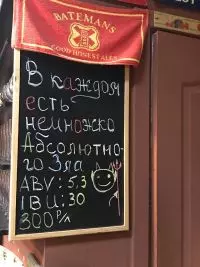 BATEMANS
GOOD HONEST ALES
В каждом
есть
немножко
Абсолютно-
го Зла
ABV: 5,3
IBU: 30
300 Р/л